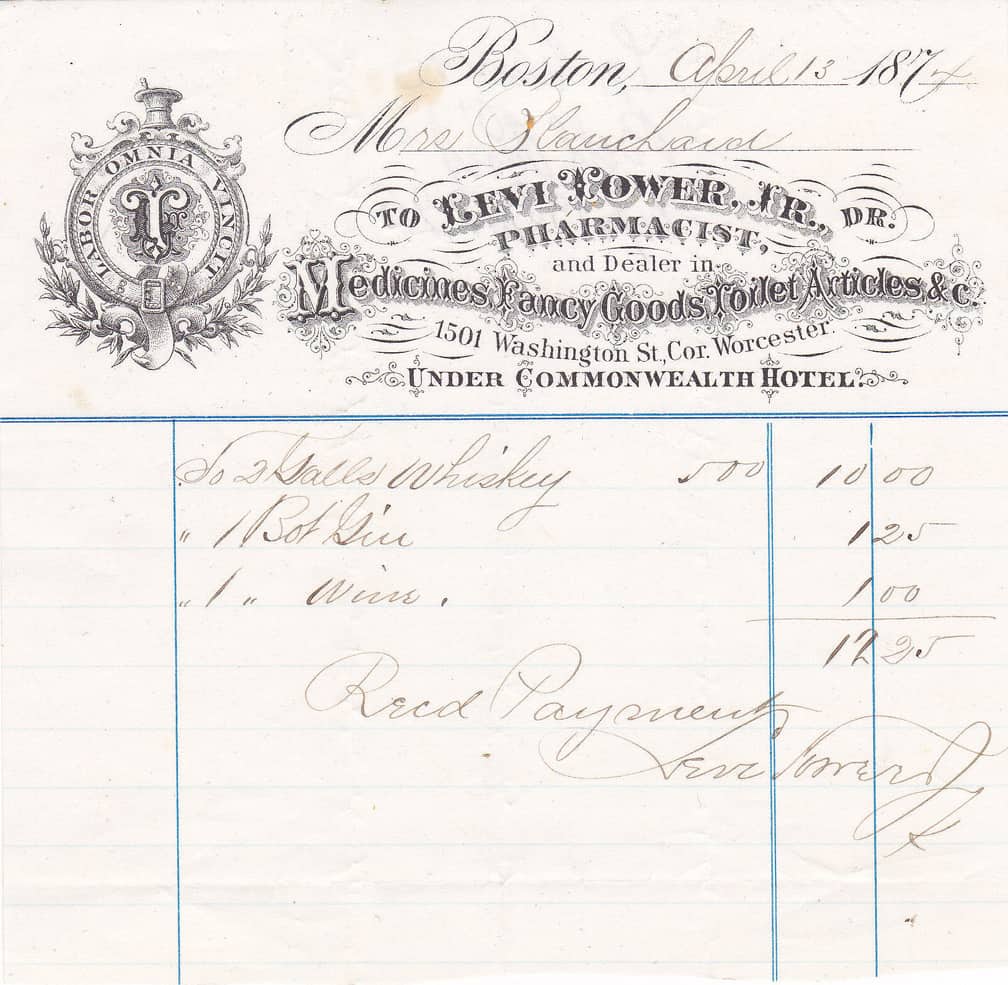 LABOR OMNIA VINCIT
Boston, April 13 1874
Mrs Blanchard
TO LEVI TOWER, JR., DR.
PHARMACIST,
and Dealer in
Medicines, Fancy Goods, Toilet Articles & c.
1501 Washington St., Cor. Worcester
UNDER COMMONWEALTH HOTEL.
To 2 Galls Whiskey 500 10 00
" 1 Bot Gin 1 25
" 1 " Wine. 1 00
12 25
Recd Payment
Levi Tower Jr